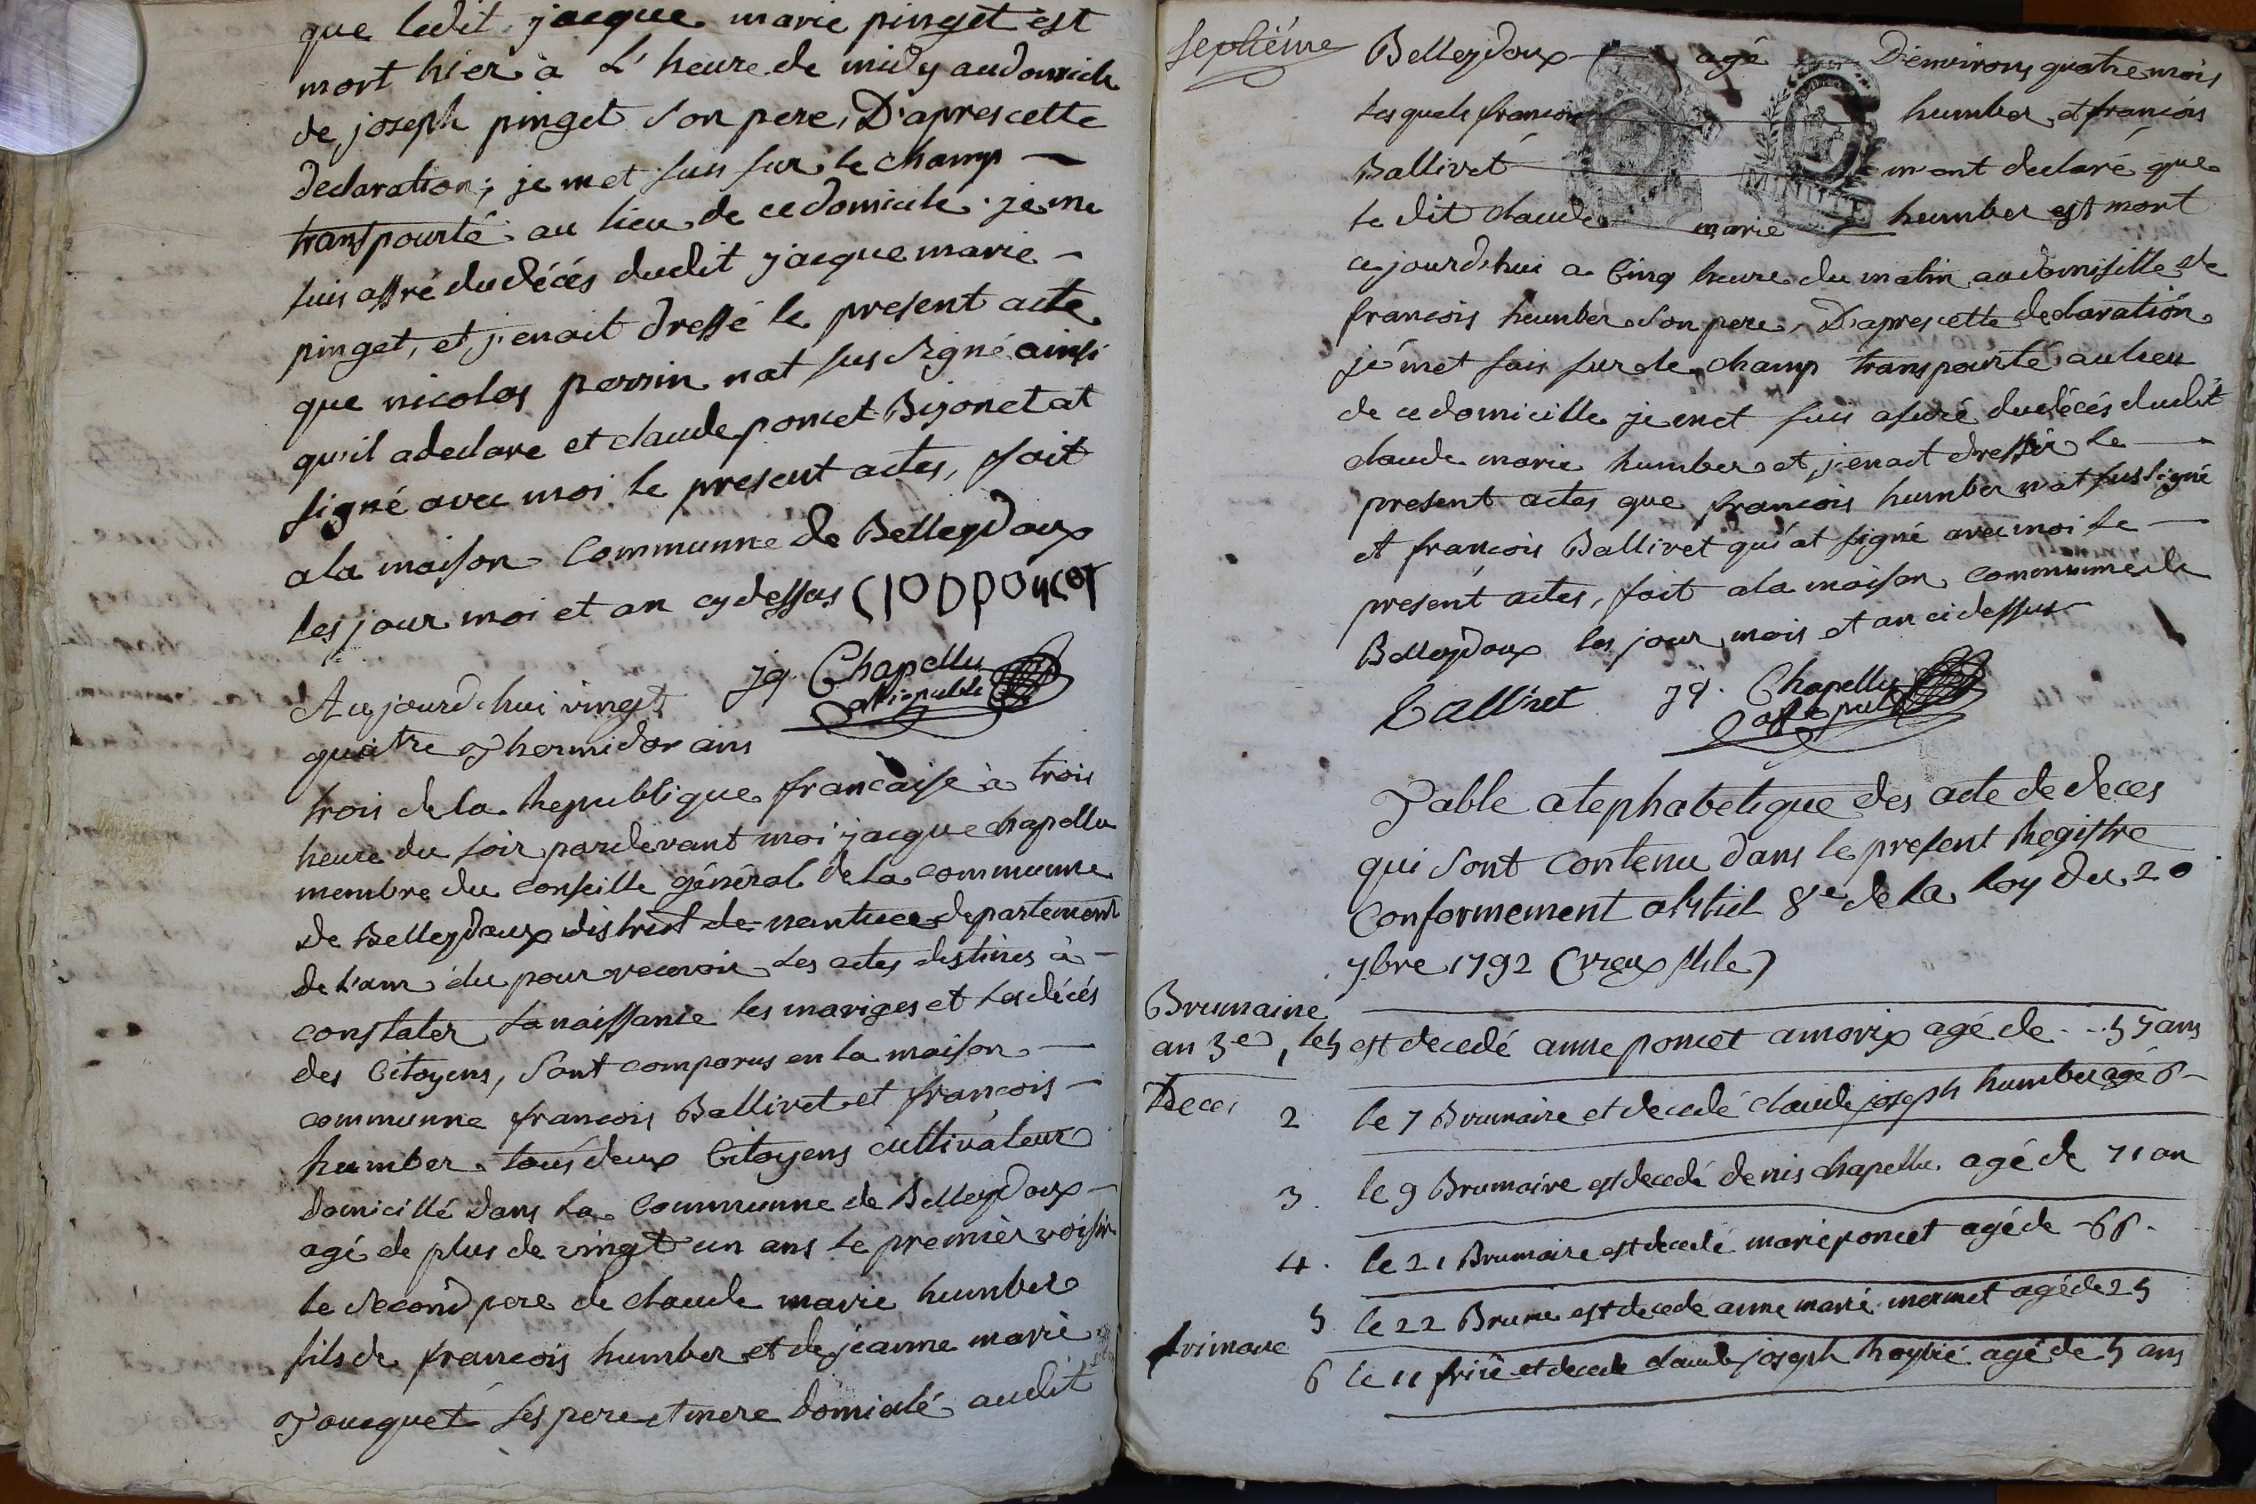 que ledit jacque marie pinget est
mort hier à L'heure de midy audomicile
de joseph pinget son pere, D'aprescette
declaration; je met suis sur le champ
transpourté au lieu de cedomicile. jeme
suis assré dudécés dudit jacque marie
pinget, et j'enait dressé le present acte
que nicolas perrin nat sus signé ainsi
qu'il adeclare et claude poncet Bizonetat
signé avec moi le present actes, fait
ala maison Communne de Belleydoux
les jour moi et an cydessus ClODpoNCeT
jq. Chapellu
offi public
Aujourd'hui vingt
quatre Thermidor ans
trois de la Republique francaise à trois
heure du soir pardevant moi jacque chapellu
membre du conseille général de la communne
de Belleydoux district de nantuee departement
de l'ain élu pour recevoir les actes destinés à
constater lanaissance les mariges et les décés
des Citoyens, sont comparus en la maison
communne francois Ballivet et françois
humber tous deux Citoyens cultivateur
domicillé dans la Communne de Belleydoux
agé de plus de vingt un ans le premier voisin
le second pere de claude marie humber
fils de francois humber et de jeanne marie
Touquet ses pere et mere domicilé audit
septiéme
Belleydoux agé D'environs quatre mois
lesquels francois humber et francois
Ballivet m'ont declaré que
le dit claude marie humber est mort
cejourd'hui a Cinq heure du matin audomisille de
francois humber son pere, D'aprescette declaration
je met suis sur le champ transpourté aulieu
de cedomicille je met suis asuré dudécés dudit
claude marie humber et j'enait dresser le
present actes que francois humber n'at sus signé
et françois Ballivet qui at signé avec moi le
present actes, fait ala maison communne de
Belleydoux les jour mois et an cidessus
Ballivet jq. Chapellu
offi publ
MINUTE
Table alephabetique des acte de deces
qui sont contenu dans le present Registre
Conformement altticl 8e de la loy du 20
7bre 1792 (vieux stile)
Brumaire
an 3e, le 5 est decedé anne poncet amorix agé de 55 ans
Deces
2 le 7 Brumaire et decedé claude joseph humber agé 6
3. le 9 Brumaire est decedé denis chapellu agé de 71 an
4. le 21 Brumaire est decedé marie poncet agé de 66.
5 le 22 Brume est decedé anne marie mermet agé de 25
frimaire
6 le 11 frire et decede claude joseph agé de 5 ans